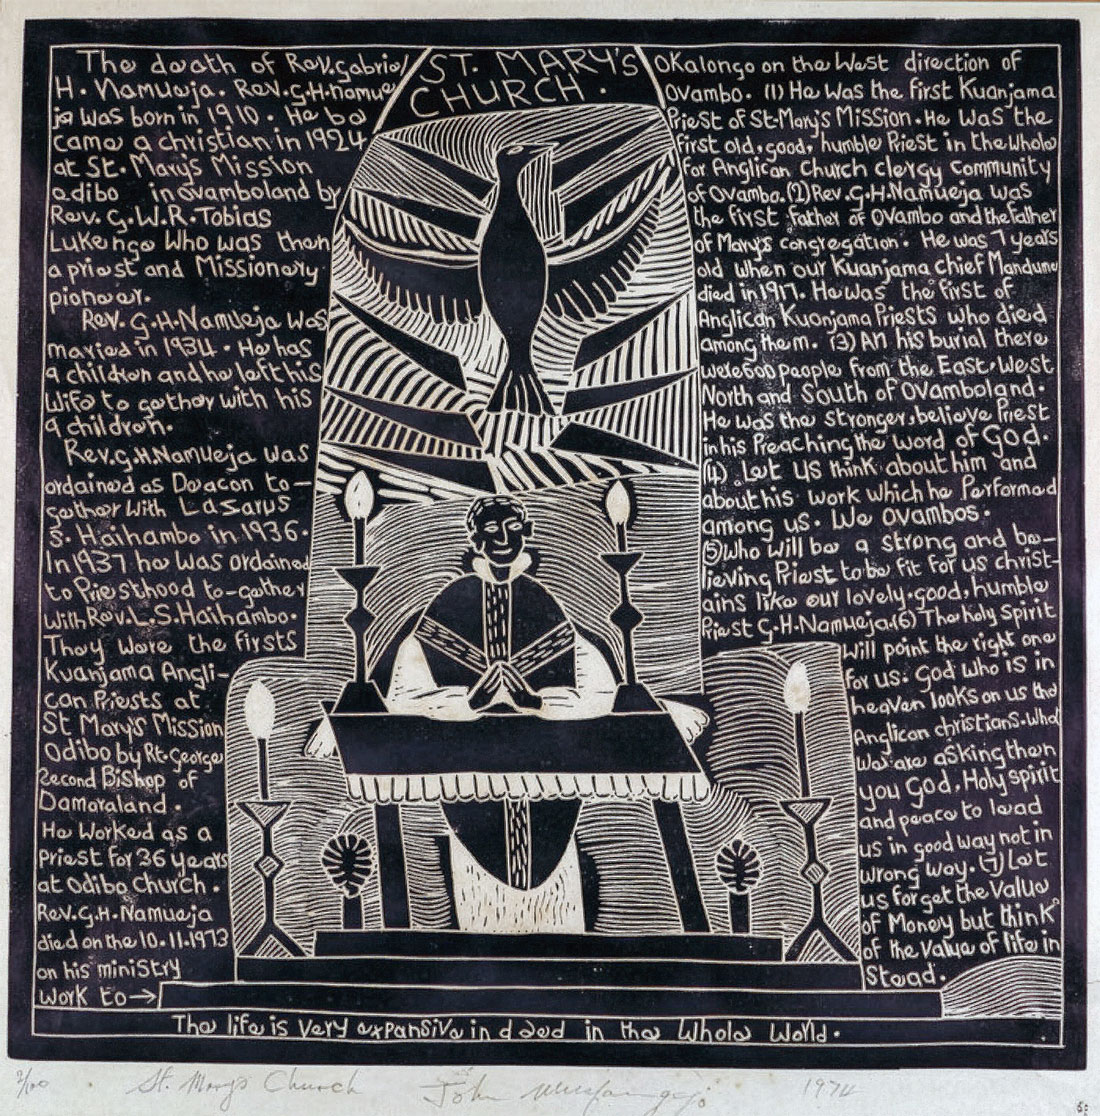 ST. MARY'S
CHURCH.
The death of Rev. Gabriel
H. Namueja. Rev. G.H. Namue
ja was born in 1910. He be
came a christian in 1924
at St. Mary's Mission
odibo in ovamboland by
Rev. G.W.R. Tobias
Lukenge Who was then
a priest and Missionery
pioneer.
Rev. G.H. Namueja was
maried in 1934. He has
9 children and he left his
wife to gether with his
9 children.
Rev. G.H. Namueja was
ordained as Deacon to-
gether with Lasarus
S. Haihambo in 1936.
In 1937 he was ordained
to Priesthood to-gether
with Rev. L.S. Haihambo.
They were the firsts
Kuanjama Angli-
can Priests at
St Mary's Mission
Odibo by Rt. George
Second Bishop of
Damaraland.
He worked as a
priest for 36 years
at Odibo Church.
Rev. G.H. Namueja
died on the 10.11.1973
on his ministry
work to →
Okalongo on the West direction of
Ovambo. (1) He was the first Kuanjama
Priest of St. Mary's Mission. He was the
first old, good, humble Priest in the whole
for Anglican Church clergy community
of Ovambo. (2) Rev. G.H. Namueja was
the first father of Ovambo and the father
of Mary's congregation. He was 7 years
old when our Kuanjama chief Mandume
died in 1917. He was the first of
Anglican Kuanjama Priests who died
among them. (3) At his burial there
were 600 people from the East, West
North and South of Ovamboland.
He was the stronger, believe Priest
in his Preaching the word of God.
(4) Let us think about him and
about his work which he Performed
among us. We ovambos.
(5) Who will be a strong and be-
lieving Priest to be fit for us christ-
ains like our lovely, good, humble
Priest G.H. Namueja. (6) The holy spirit
will point the right one
for us. God who is in
heaven looks on us the
Anglican christians. who
we are asking then
you God, Holy spirit
and peace to lead
us in good way not in
wrong way. (7) Let
us forget the value
of Money but think
of the value of life in
stead.
The life is very expansive in deed in the whole world.
2/100 St. Mary's Church John Muafangejo 1974